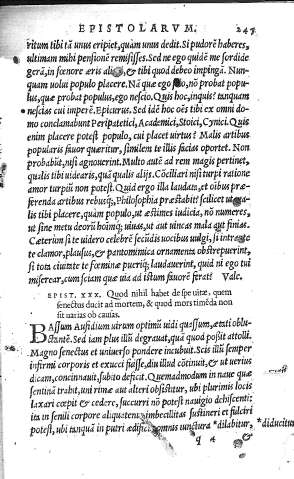 EPISTOLARVM. 247
ritum tibi tā unus eripiet, quàm unus dedit. Si pudorē haberes,
ultimam mihi pensionē remisisses. Sed ne ego quidē me sordide
gerā, in fœnore æris alieni, & tibi quod debeo impingā. Nun-
quam uolui populo placere. Nā quæ ego scio, nō probat popu-
lus, quæ probat populus, ego nescio. Quis hoc, inquis? tanquam
nescias cui imperē. Epicurus. Sed idē hoc oēs tibi ex omni do-
mo conclamabunt Peripatetici, Academici, Stoici, Cynici. Quis
enim placere potest populo, cui placet uirtus? Malis artibus
popularis fauor quæritur, similem te illis facias oportet. Non
probabūt, nisi agnouerint. Multo autē ad rem magis pertinet,
qualis tibi uidearis, quā qualis alijs. Cōciliari nisi turpi ratione
amor turpiū non potest. Quid ergo illa laudata, et oibus præ-
ferenda artibus rebusq́; Philosophia præstabit? scilicet ut
lis tibi placere, quàm populo, ut æstimes iudicia, nō numeres,
ut sine metu deorū hoīnumq́; uiuas, ut aut uincas mala aut finias.
Cæterùm si te uidero celebrē secūdis uocibus uulgi, si intrāte
te clamor, plausus, & pantomimica ornamenta obstrepuerint,
si tota ciuitate te fœminæ pueriq́; laudauerint, quid ni ego tui
miserear, cum sciam quæ uia ad istum fauorē ferat? Vale.
EPIST. XXX. Quod nihil habet de spe uitæ, quem
senectus ducit ad mortem, & quod mors timēda non
sit uarias ob causas.
BAssum Aufidium uirum optimū uidi quassum, ætati oblu-
ctantē. Sed iam plus illū degrauat, quā quod possit attolli.
Magno senectus et uniuerso pondere incubuit. Scis illū semper
infirmi corporis et exucci fuisse, diu illud cōtinuit, & ut uerius
dicam, concinnauit, subito defecit. Quemadmodum in naue quæ
sentinā trahit, uni rimæ aut alteri obsistitur, ubi plurimis locis
laxari cœpit & cedere, succurri nō potest nauigio dehiscenti:
ita in senili corpore aliquatenus imbecillitas sustineri et fulciri
potest, ubi tanquā in putri ædificio omnis iunctura *dilabitur, *diducitur
q 4